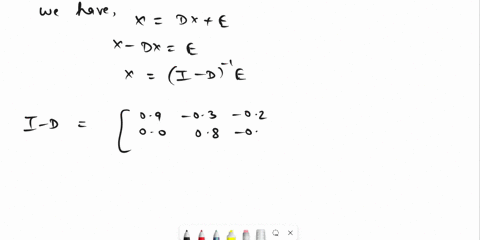 we have, x = Dx + ε
x - Dx = ε
x = (I-D)⁻¹ ε
I-D = [ 0.9 -0.3 -0.2
0.0 0.8 -0.